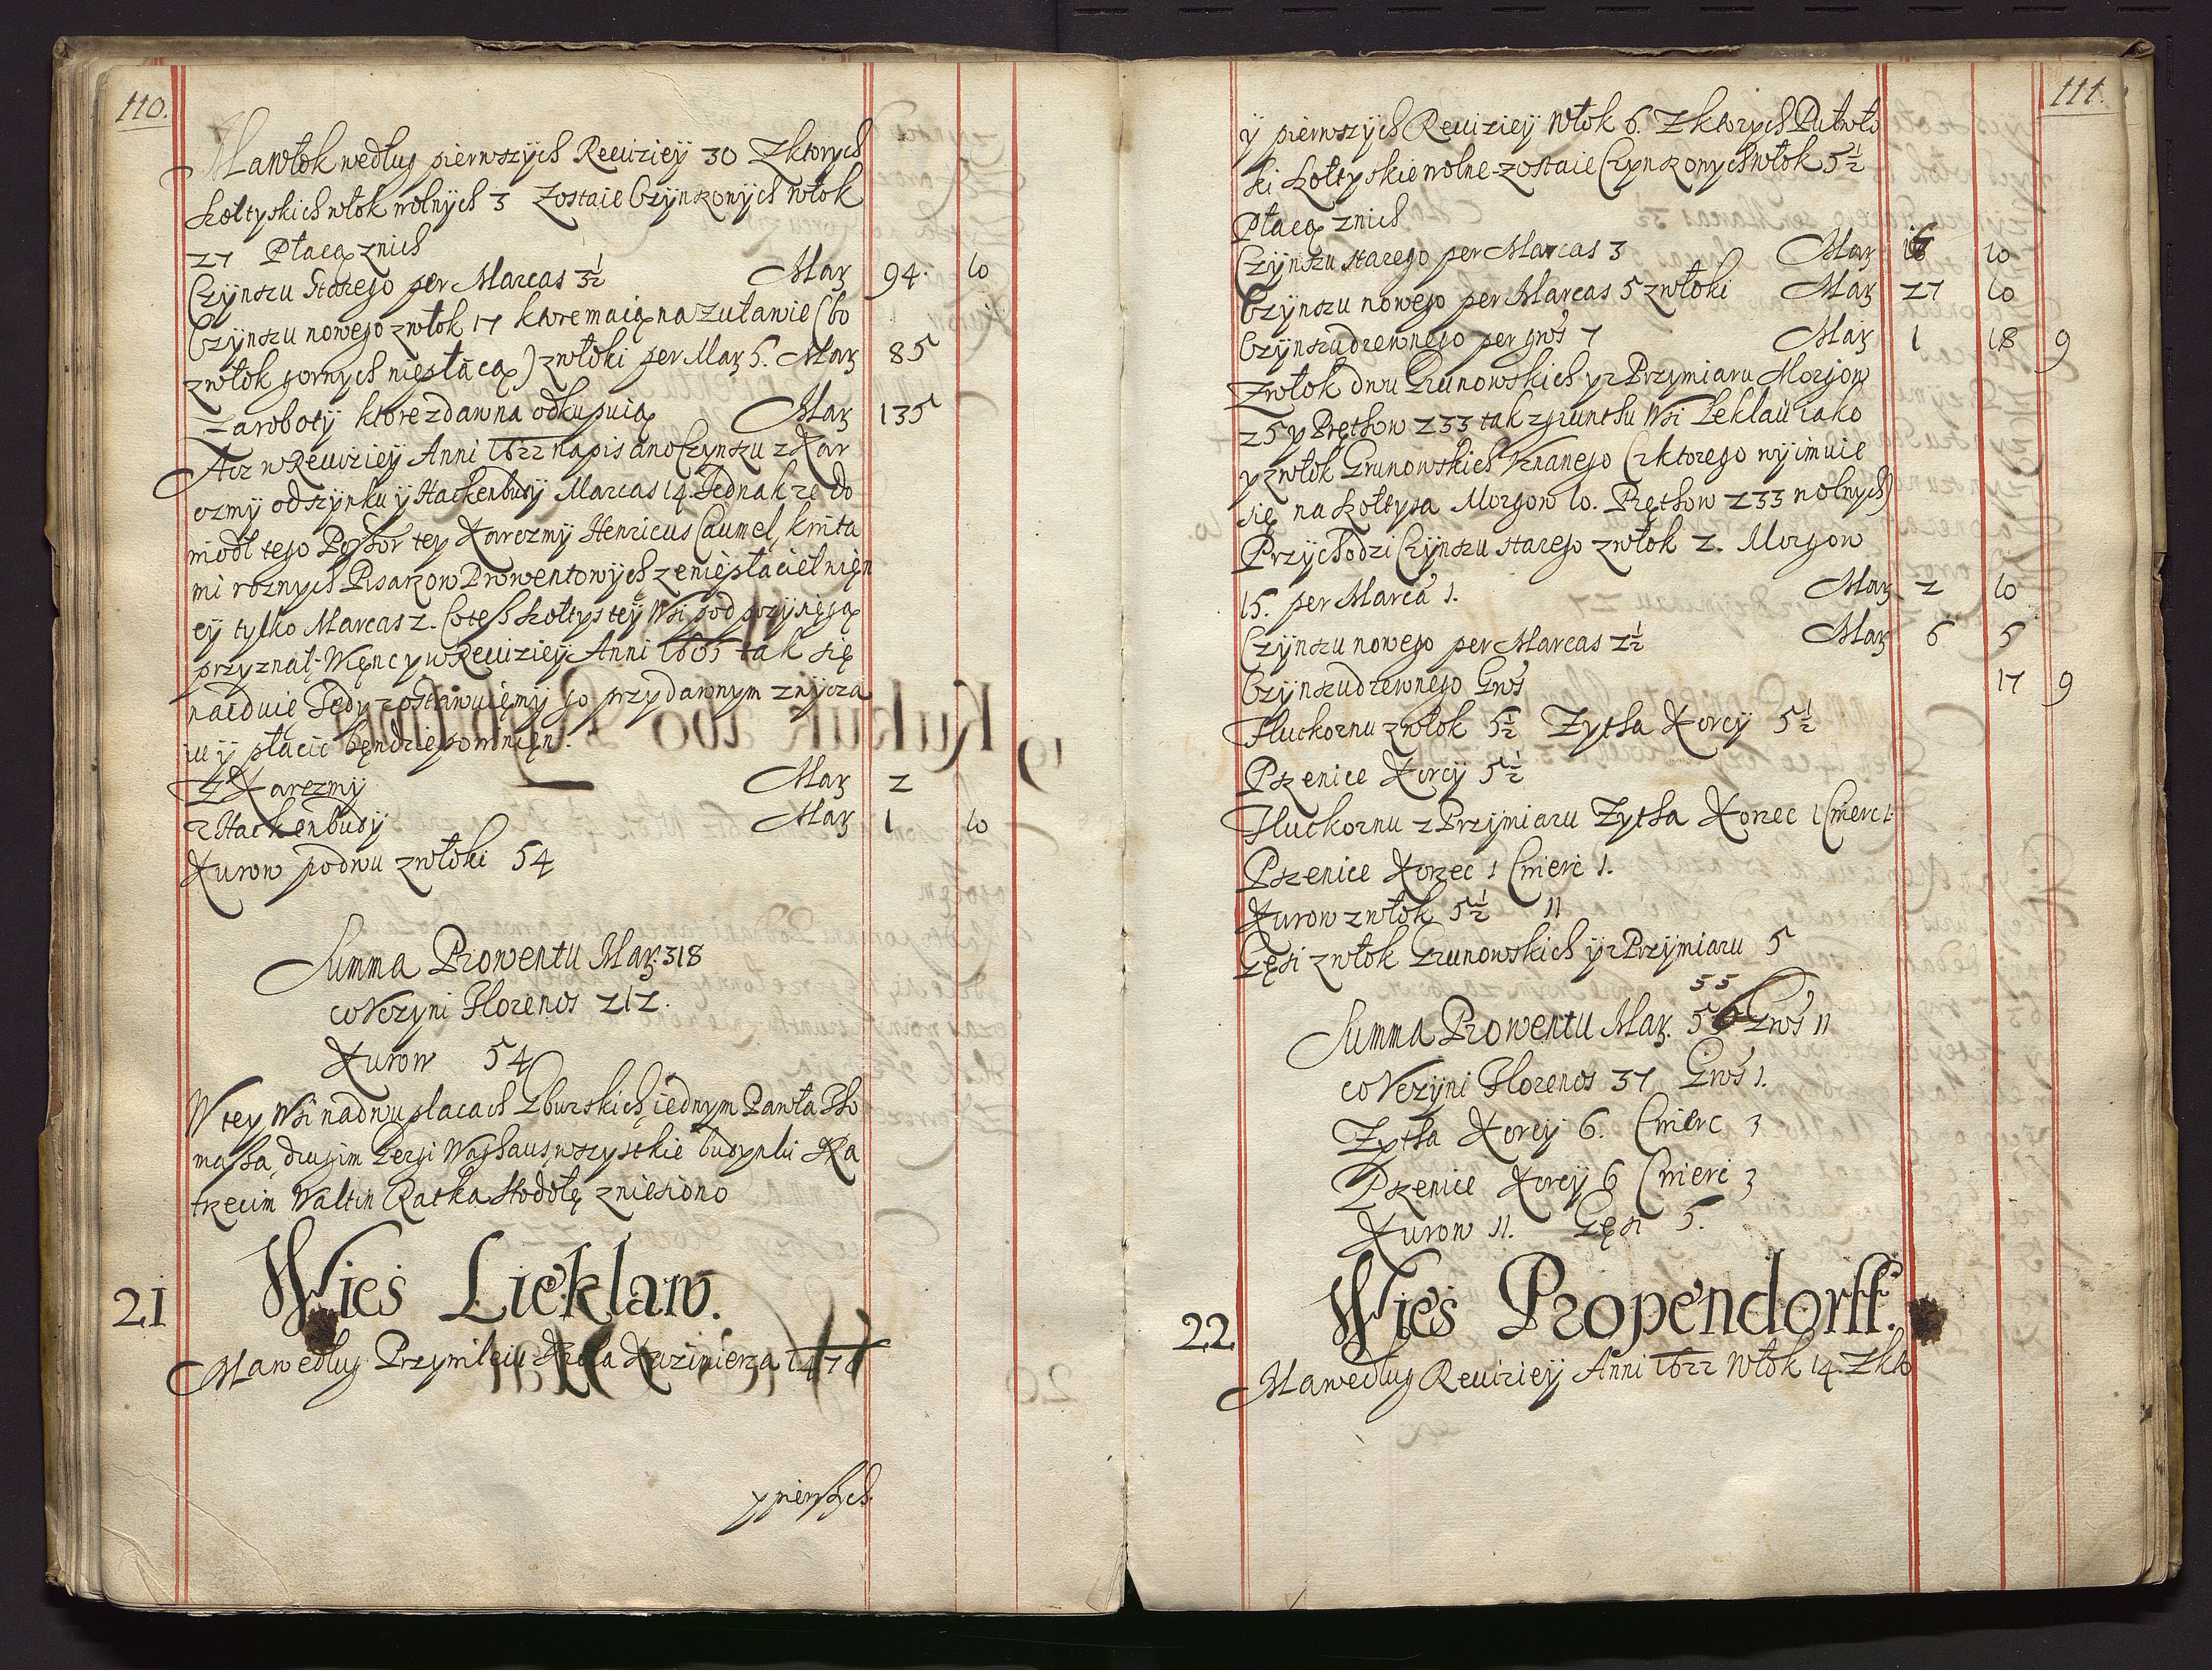 110.
Ma włok według pierwszych Reuiziey 30 Zktorych
Szołtyskich włok wolnych 3 Zostaie Czynszowych włok
27 Płacą znich
Czynszu Starego per Marcas 3½ Mar 94. 10
Czynszu nowego zwłok 17 ktore maią na Zuławie (bo
zwłok gornych niepłacą) zwłoki per Mar 5. Mar 85
Za roboty ktore zdawna odkupuią Mar 135
Acz w Reuiziey Anni 1622 napisano Czynszu z Kar
czmy od szynku y Hackenbudy Marcas 14. Jednak ze do
wiodł tego Possor tey Karczmy Henricus Caumel, kwita
mi roznych Pisarzow Prowentowych ze niepłacieł więn
cy tylko Marcas 2. Cotesz Szołtys tey Wsi pod przysięgą
przyznał. Więnc y w Reuiziey Anni 1605 tak się
naiduie Tedy zostawuiemy go przy dawnym zwycza
iu y płacic bęndzie powinięn.
Z Karczmy Mar 2
z Hackenbudy Mar 1 10
Kurow podwu zwłoki 54
Summa Prowentu Mar. 318
co Vczyni Florenos 212.
Kurow 54
W tey Wsi nadwu placach Gburskich, iednym Pawła Tho
massa, drugim Gergi Washaus, wszystkie budynki A Na
trzecim Waltin Ratka Stodołę zniesiono
21 Wieś Lieklaw.
Ma według Przywileiu Krola Kazimierza 1476
y pierwszych
111.
y pierwszych Reuiziey Włok 6. Zktorych Pułwło
ki Szołtyskie wolne zostaie Czynszowych włok 5½
Płacą znich
Czynszu starego per Marcas 3 Mar 16 10
Czynszu nowego per Marcas 5 zwłoki Mar 27 10
Czynszu drzewnego per gros 7 Mar 1 18 9
Zwłok dwu Grunowskich y z Przymiaru Morgow
25 y Prętow 233 tak z gruntu Wsi Leklau iako
y zwłok Grunowskich Vznanego (z ktorego wyimuie
się na Szołtysa Morgow 10. Prętow 233 wolnych)
Przychodzi Czynszu starego zwłok 2. Morgow
15. per Marca 1. Mar 2 10
Czynszu nowego per Marcas 2½ Mar 6 5
Czynszu drzewnego Gros 17 9
Pluckornu zwłok 5½ Zytha Korcy 5½
Pszenice Korcy 5½
Pluckornu z Przymiaru Zytha Korzec 1 Cwierc 1.
Pszenice Korzec 1 Cwierc 1.
Kurow zwłok 5½ 11
Gęsi zwłok Grunowskich y z Przymiaru 5
55
Summa Prowentu Mar. 56 Gros 11
co Vczyni Florenos 37 Gros 1.
Zytha Korcy 6. Cwierc 3
Pszenice Korcy 6 Cwierc 3
Kurow 11. Gęsi 5.
22 Wieś Propendorff.
Ma według Reuiziey Anni 1622 Włok 14. Zkto